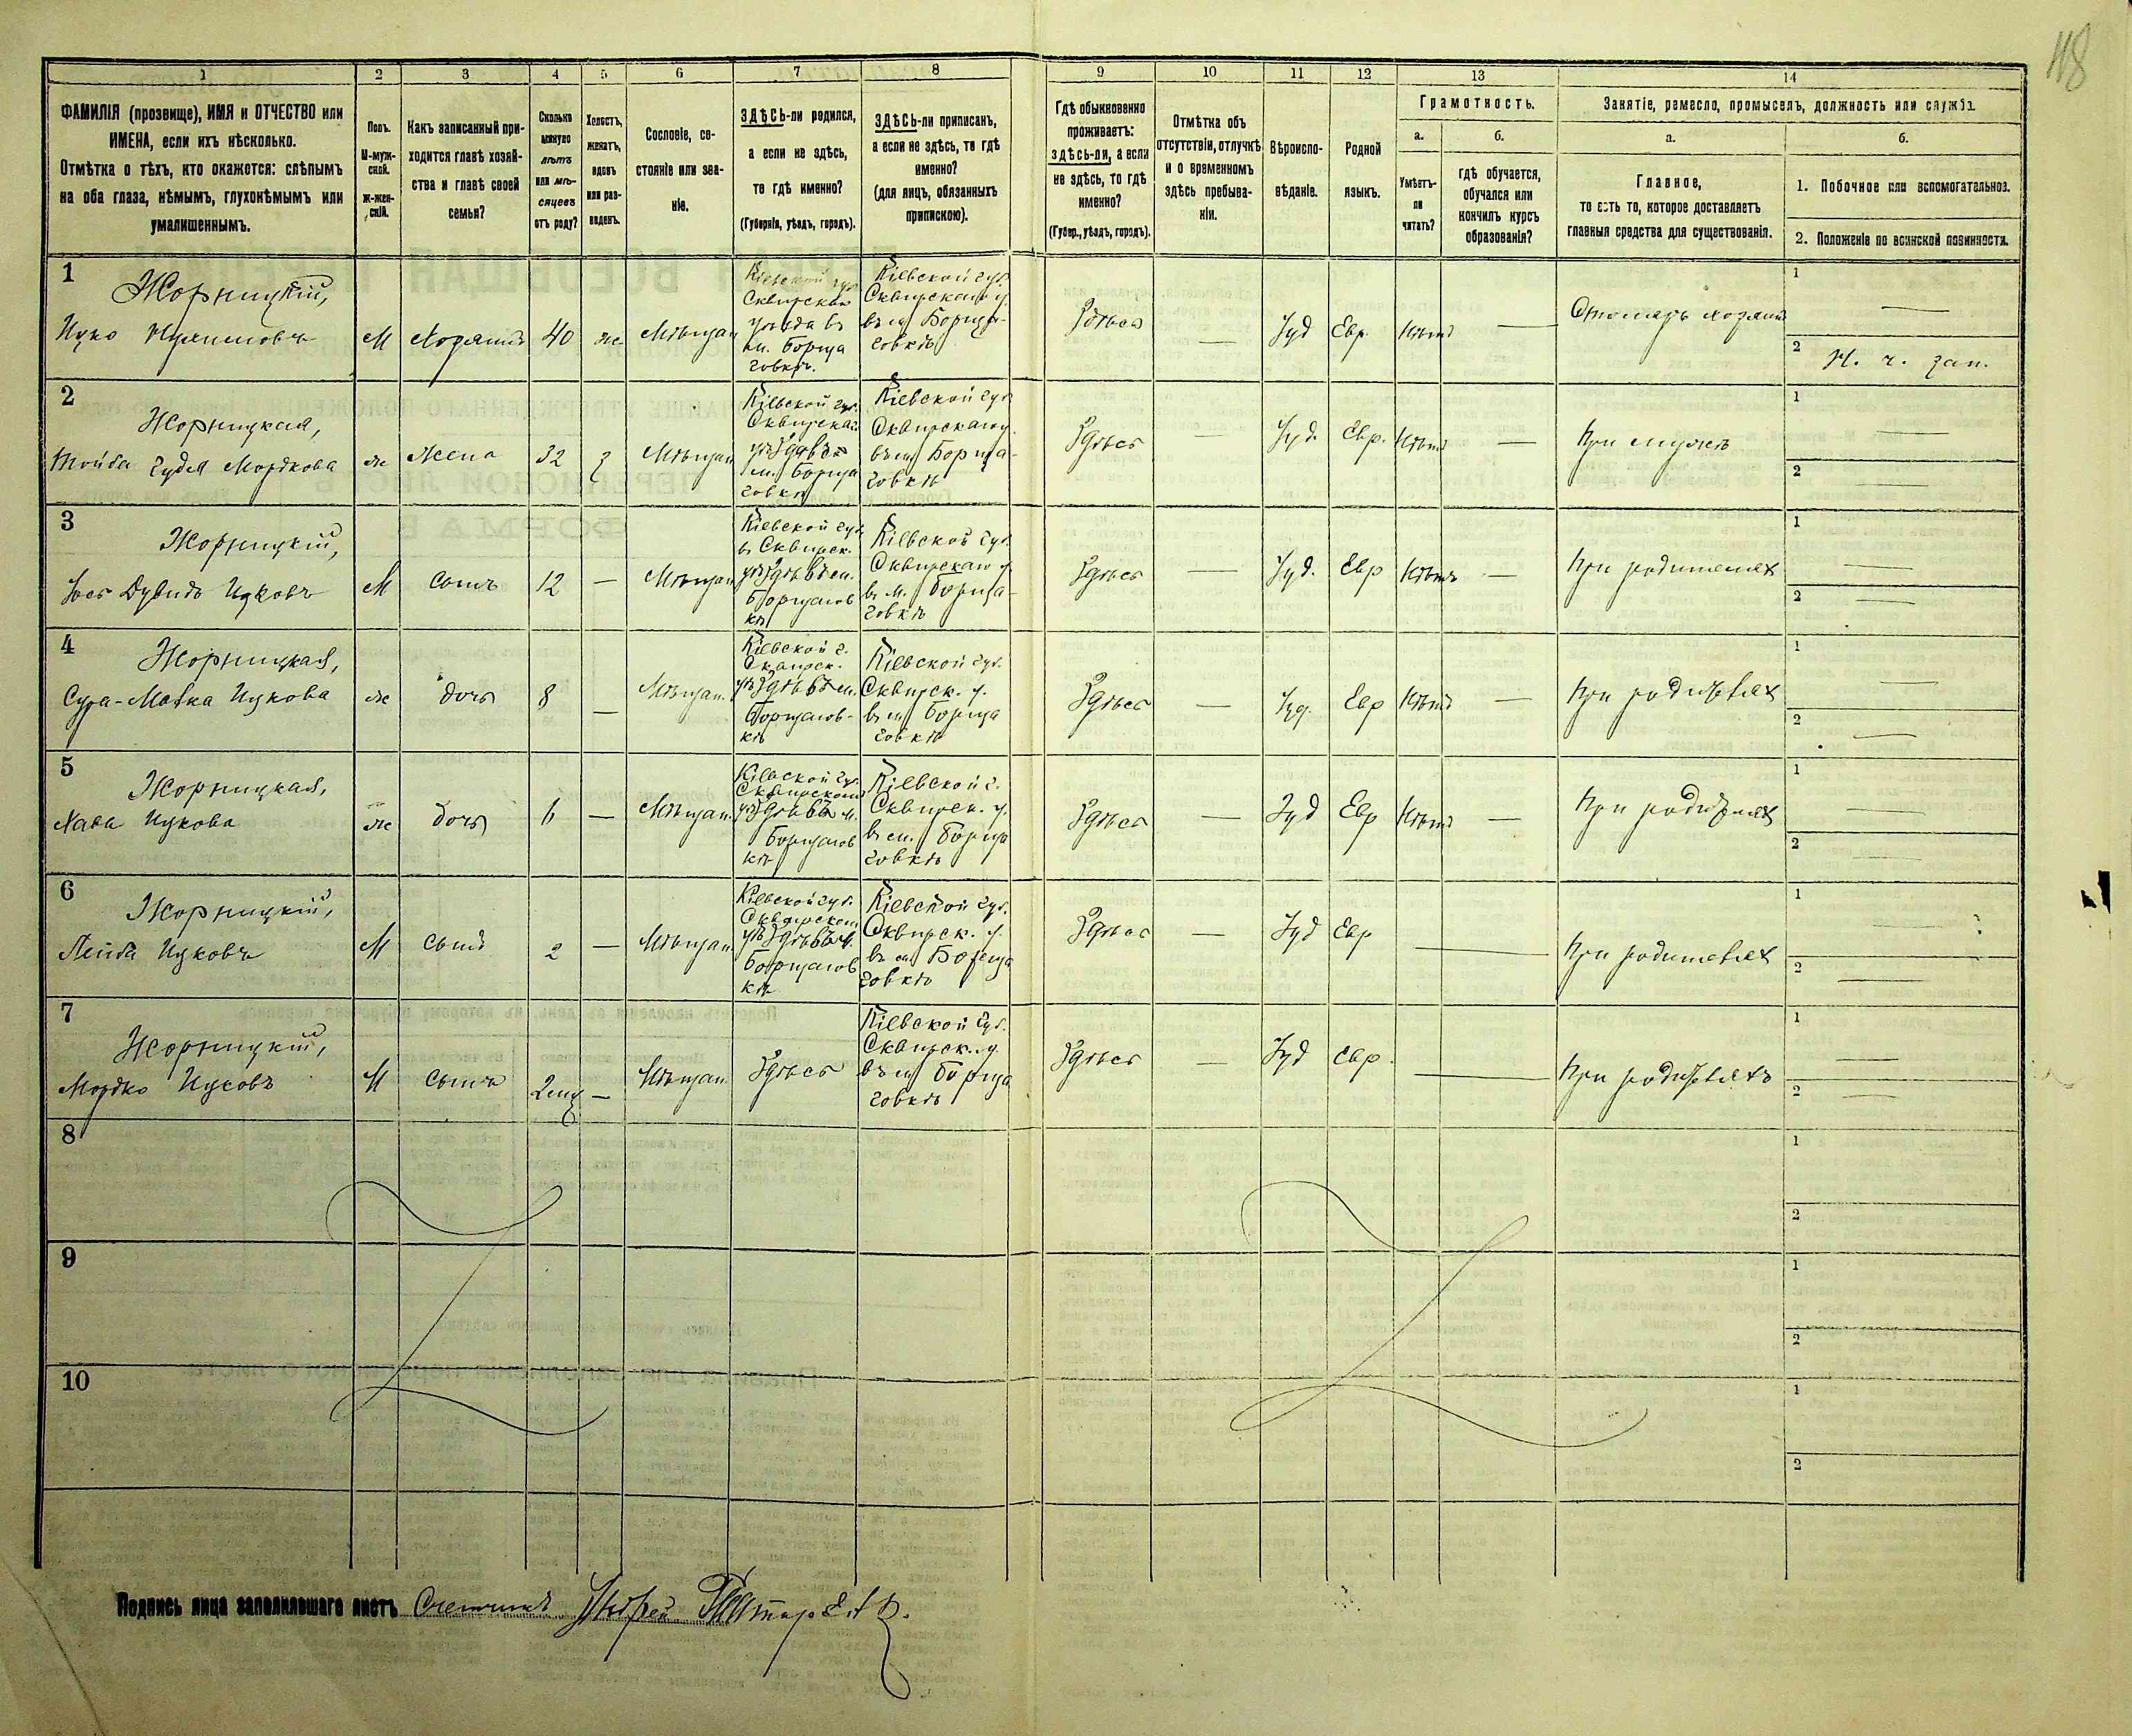 118
1
2
3
4
5
6
7
8
9
10
11
12
13
14
ФАМИЛІЯ (прозвище), ИМЯ и ОТЧЕСТВО или
ИМЕНА, если ихъ нѣсколько.
Отмѣтка о тѣхъ, кто окажется: слѣпымъ
на оба глаза, нѣмымъ, глухонѣмымъ или
умалишеннымъ.
Полъ.
М-муж-
ской.
Ж-жен-
скій.
Какъ записанный при-
ходится главѣ хозяй-
ства и главѣ своей
семьи?
Сколько
минуло
лѣтъ
или мѣ-
сяцевъ
отъ роду?
Холостъ,
женатъ,
вдовъ
или раз-
веденъ.
Сословіе, со-
стояніе или зва-
ніе.
ЗДѢСЬ-ли родился,
а если не здѣсь,
то гдѣ именно?
(Губернія, уѣздъ, городъ).
ЗДѢСЬ-ли приписанъ,
а если не здѣсь, то гдѣ
именно?
(для лицъ, обязанныхъ
припискою).
Гдѣ обыкновенно
проживаетъ:
здѣсь-ли, а если
не здѣсь, то гдѣ
именно?
(Губер., уѣздъ, городъ).
Отмѣтка объ
отсутствіи, отлучкѣ
и о временномъ
здѣсь пребыва-
ніи.
Вѣроиспо-
вѣданіе.
Родной
языкъ.
Грамотность.
а.
Умѣетъ-
ли
читать?
б.
гдѣ обучается,
обучался или
кончилъ курсъ
образованія?
Занятіе, ремесло, промыселъ, должность или служба.
а.
Главное,
то есть то, которое доставляетъ
главныя средства для существованія.
б.
1. Побочное или вспомогательное.
2. Положеніе по воинской повинности.
1
Жорницкій,
Ицко
М
Хозяинъ
40
ж
Мѣщан
Кіевской губ
Сквирскаго
уѣзда въ
м. Борща
говкѣ.
Кіевской губ.
Сквирскаго у.
въ м. Борща-
говкѣ
Здѣсь
—
Іуд
Евр.
Нѣтъ
—
хозяинъ
1 —
2 Н. ч. зап.
2
Жорницкая,
Гудя Мордкова
ж
Жена
32
З
Мѣщан
Кіевской губ.
Сквирскаго
уѣзда въ
м. Борща
говкѣ
Кіевской губ
Сквирскаго у.
въ м. Борща-
говкѣ
Здѣсь
—
Іуд.
Евр.
Нѣтъ
—
При мужѣ
1 —
2 —
3
Жорницкій,
Іось Дувидъ Ицковъ
М
Сынъ
12
—
Мѣщан
Кіевской губ
въ Сквирск.
уѣздѣ въ м.
Борщагов
кѣ
Кіевской губ.
Сквирскаго у.
въ м. Борща-
говкѣ
Здѣсь
—
Іуд.
Евр
Нѣтъ
—
При родителях
1 —
2 —
4
Жорницкая,
Сура-Малка Ицкова
ж
дочь
8
—
Мѣщан.
Кіевской г.
Сквирск.
уѣздѣ въ м.
Борщагов-
кѣ
Кіевской губ.
Сквирск. у.
въ м. Борща
говкѣ
Здѣсь
—
Іуд.
Евр
Нѣтъ
—
При родителях
1 —
2 —
5
Жорницкая,
Хава Ицкова
ж
дочь
6
—
Мѣщан.
Кіевской губ.
Сквирскомъ
уѣздѣ въ м.
Борщагов
кѣ
Кіевской г.
Сквирск. у.
въ м. Борща
говкѣ
Здѣсь
—
Іуд
Евр
Нѣтъ
—
При родителях
1 —
2 —
6
Жорницкій,
Лейба Ицковъ
М
Сынъ
2
—
Мѣщан.
Кіевской губ.
Сквирском
уѣздѣ въ м.
Борщагов
кѣ
Кіевской губ.
Сквирск. у.
въ м. Борща
говкѣ
Здѣсь
—
Іуд
Евр
—
При родителях
1 —
2 —
7
Жорницкій,
Мордко Ицковъ
М
Сынъ
2 мц
—
Мѣщан
Здѣсь
Кіевской Губ.
Сквирск. у.
въ м. Борща
говкѣ
Здѣсь
—
Іуд
Евр.
—
При родителяхъ
1 —
2 —
8
1
2
9
1
2
10
1
2
Подпись лица заполнявшаго листъ Счетчикъ Андрей